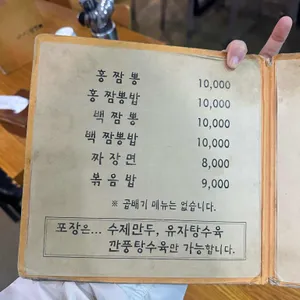 홍짬뽕 10,000
홍짬뽕밥 10,000
백짬뽕 10,000
백짬뽕밥 10,000
짜장면 8,000
볶음밥 9,000
※ 곱배기 메뉴는 없습니다.
포장은... 수제만두, 유자탕수육
깐풍탕수육만 가능합니다.